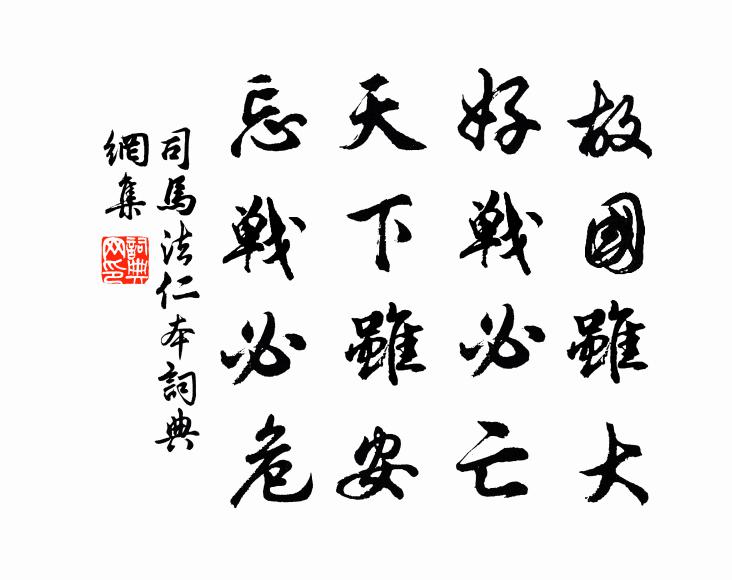 故國雖大
好戦必亡
天下雖安
忘戦必危
司馬法仁本詞典
網集
詞典
网印